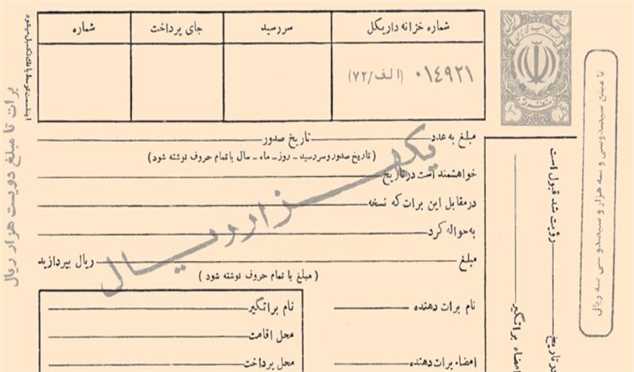 شماره خزانه داریکل
سررسید
جای پرداخت
شماره
۰۱۴۹۲۱ (الف/۷۲)
مبلغ به عدد
تاریخ صدور
(تاریخ صدور وسررسید - روز - ماه - سال با تمام حروف نوشته شود)
خواهشمند است در تاریخ
در مقابل این برات که نسخه
به حواله کرد
مبلغ
ریال بپردازید
(مبلغ با تمام حروف نوشته شود)
یکهزار ریال
نام برات دهنده
امضاء برات دهنده
نام براتگیر
محل اقامت
محل پرداخت
رؤیت شد قبول است
در تاریخ
امضاء براتگیر
برات تا مبلغ دویست هزار ریال